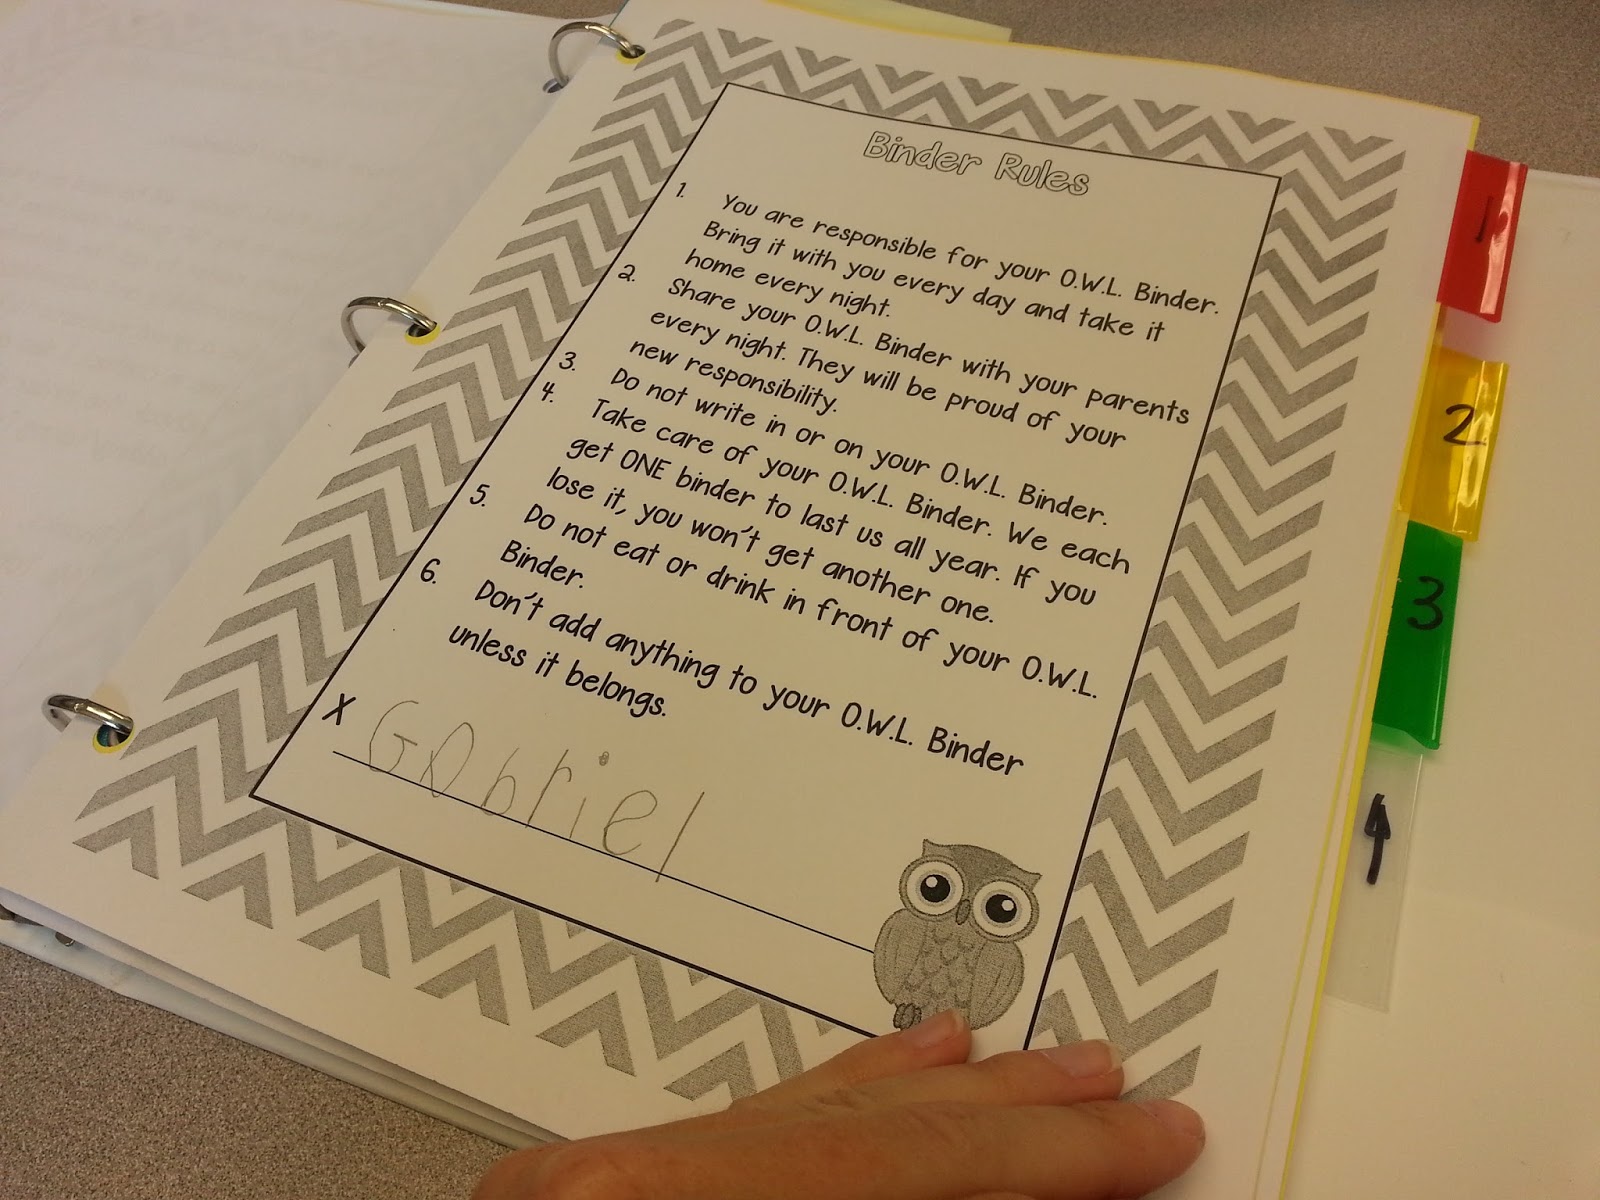 Binder Rules
1. You are responsible for your O.W.L. Binder.
Bring it with you every day and take it
home every night.
2. Share your O.W.L. Binder with your parents
every night. They will be proud of your
new responsibility.
3. Do not write in or on your O.W.L. Binder.
4. Take care of your O.W.L. Binder. We each
get ONE binder to last us all year. If you
lose it, you won't get another one.
5. Do not eat or drink in front of your O.W.L.
Binder.
6. Don't add anything to your O.W.L. Binder
unless it belongs.
X Gabriel
1
2
3